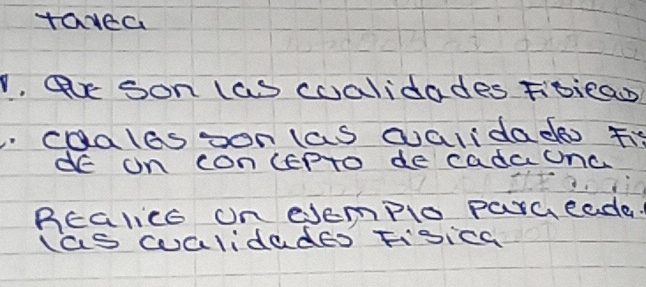 tarea
1. Que son las cualidades Fisicas
. cuales son las cualidades Fis
de un concepto de cada una
Realice un ejemplo para cada
las cualidades Fisica